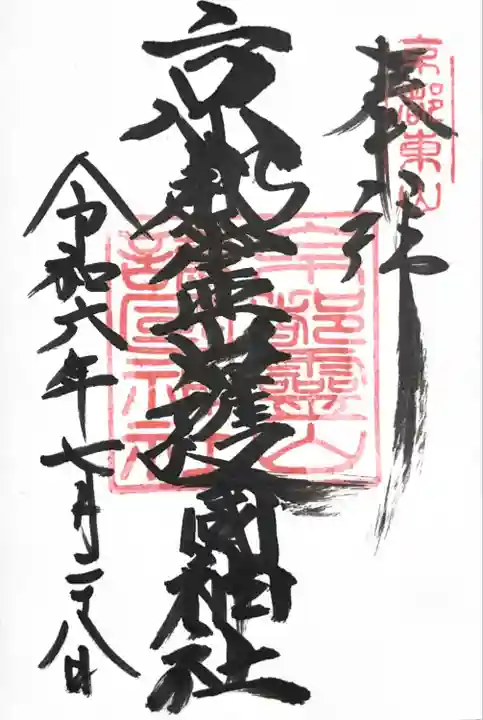 京都東山
奉拝
京都霊山護國神社
京都霊山護國神社
令和六年七月二十八日